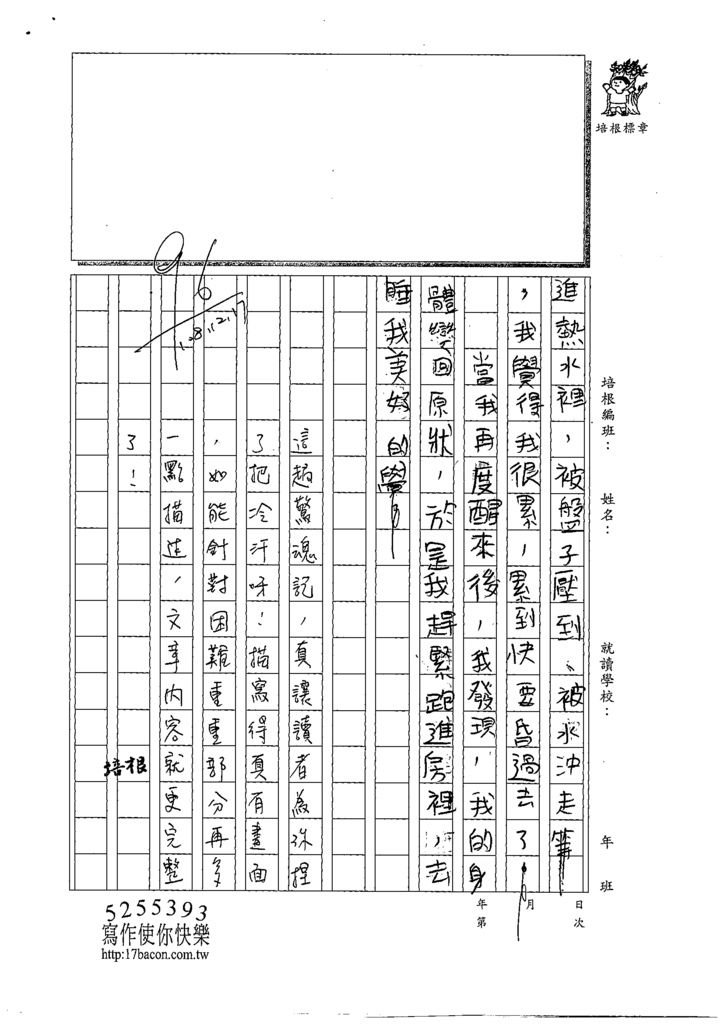 培根標章
培根編班：　姓名：　就讀學校：　年　班
進熱水裡，被盤子壓到、被水沖走等
，我覺得我很累，累到快要昏過去了。
當我再度醒來後，我發現，我的身
體變回原狀，於是我趕緊跑進房裡，去
睡我美好的覺。
這趟驚魂記，真讓讀者為你捏
了把冷汗呀！描寫得真有畫面
，如能針對困難重重部分再多
一點描述，文章內容就更完整
了！
培根
96
年　月　日
第　次
5255393
寫作使你快樂
http:17bacon.com.tw